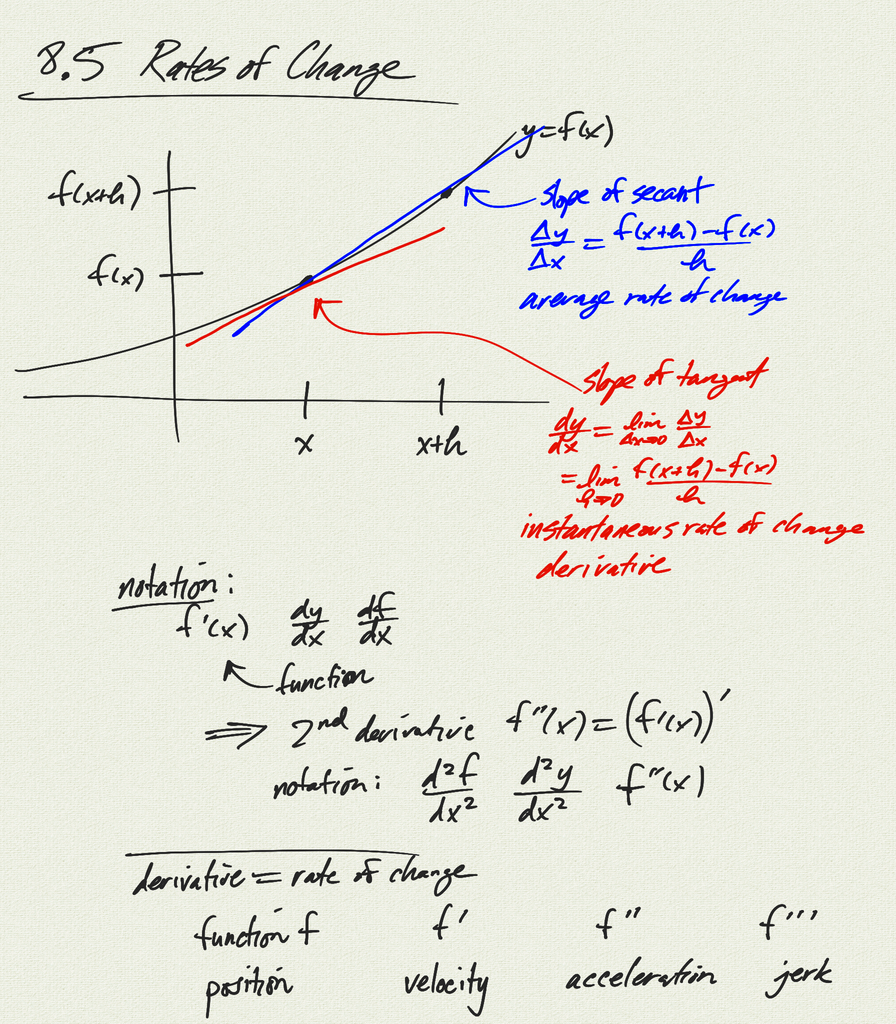 8.5 Rates of Change
y=f(x)
f(x+h)
f(x)
x
x+h
slope of secant
Δy/Δx = (f(x+h)-f(x))/h
average rate of change
slope of tangent
dy/dx = lim Δx→0 Δy/Δx
= lim h→0 (f(x+h)-f(x))/h
instantaneous rate of change
derivative
notation:
f'(x) dy/dx df/dx
function
⇒ 2nd derivative f''(x) = (f'(x))'
notation: d²f/dx² d²y/dx² f''(x)
derivative = rate of change
function f f' f'' f'''
position velocity acceleration jerk